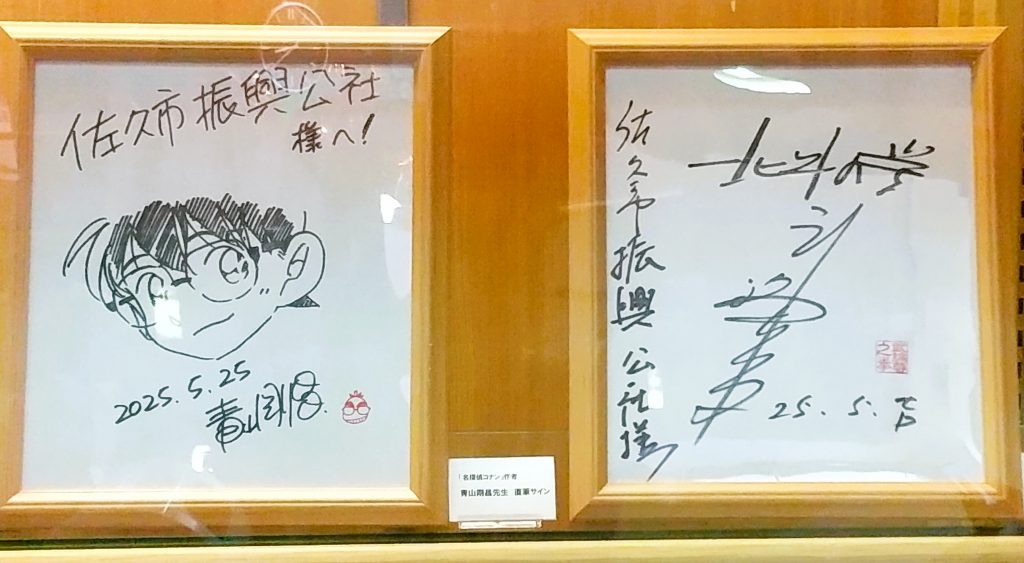 佐久市振興公社
様へ!
2025.5.25
青山剛昌
佐久市振興公社様
25.5.吉
「名探偵コナン」作者
青山剛昌先生 直筆サイン